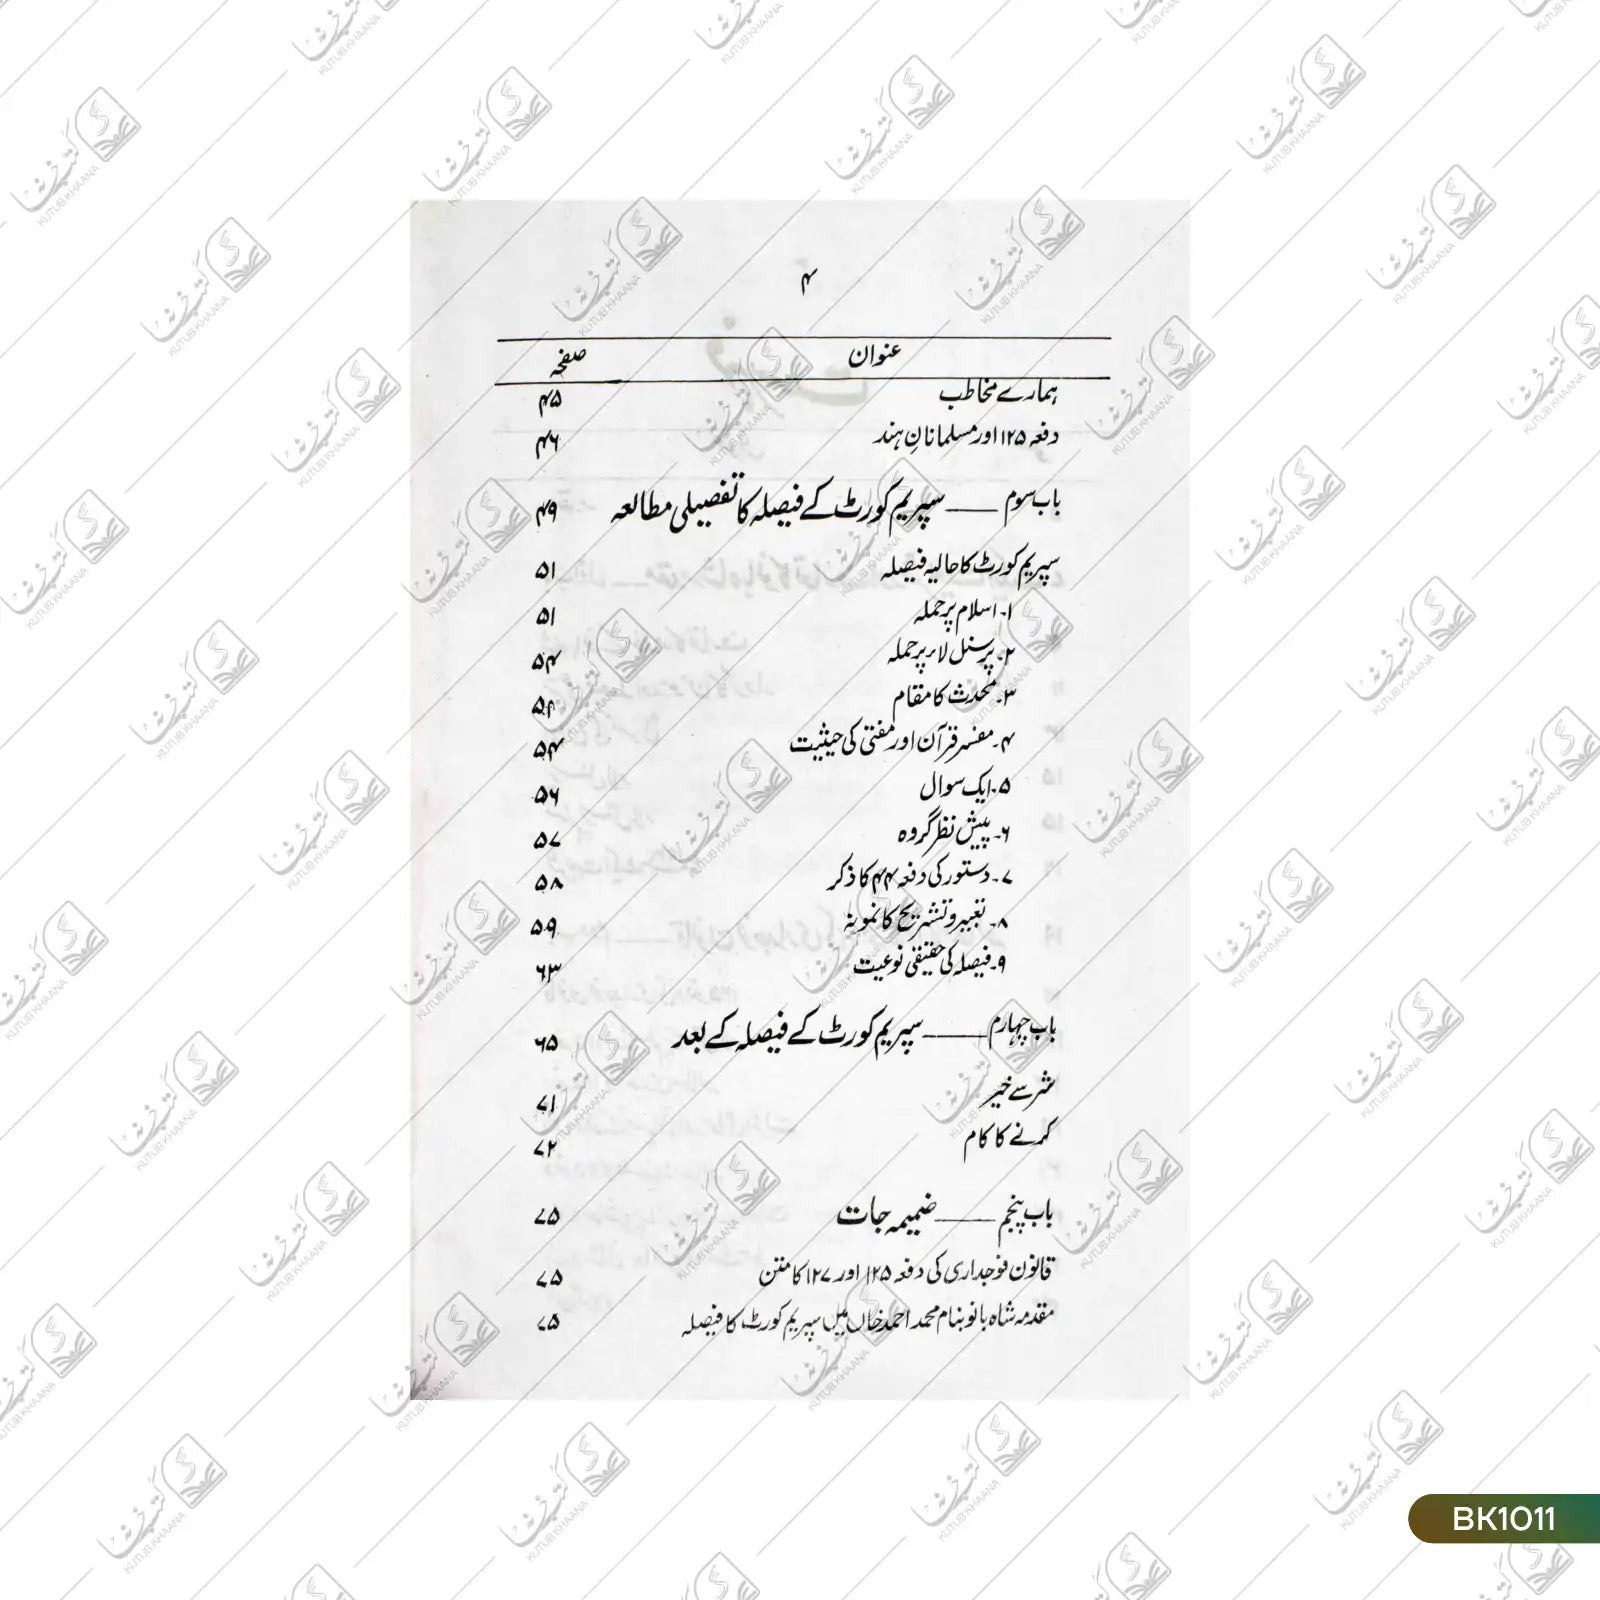 ۴
عنوان صفحہ
ہمارے مخاطب ۴۵
دفعہ ۱۲۵ اور مسلمانانِ ہند ۴۶
باب سوم ——— سپریم کورٹ کے فیصلہ کا تفصیلی مطالعہ ۴۹
سپریم کورٹ کا حالیہ فیصلہ ۵۱
۱۔ اسلام پر حملہ ۵۱
۲۔ پرسنل لاء پر حملہ ۵۴
۳۔ محدث کا مقام ۵۴
۴۔ مفسر قرآن اور مفتی کی حیثیت ۵۴
۵۔ ایک سوال ۵۶
۶۔ پیش نظر گروہ ۵۷
۷۔ دستور کی دفعہ ۴۴ کا ذکر ۵۸
۸۔ تعبیر و تشریح کا نمونہ ۵۹
۹۔ فیصلہ کی حقیقی نوعیت ۶۳
باب چہارم ——— سپریم کورٹ کے فیصلہ کے بعد ۶۵
شر سے خیر ۷۱
کرنے کا کام ۷۲
باب پنجم ——— ضمیمہ جات ۷۵
قانون فوجداری کی دفعہ ۱۲۵ اور ۱۲۷ کا متن ۷۵
مقدمہ شاہ بانو بنام محمد احمد خاں میں سپریم کورٹ کا فیصلہ ۷۵
BK1011
کتب خانہ
KUTUB KHAANA